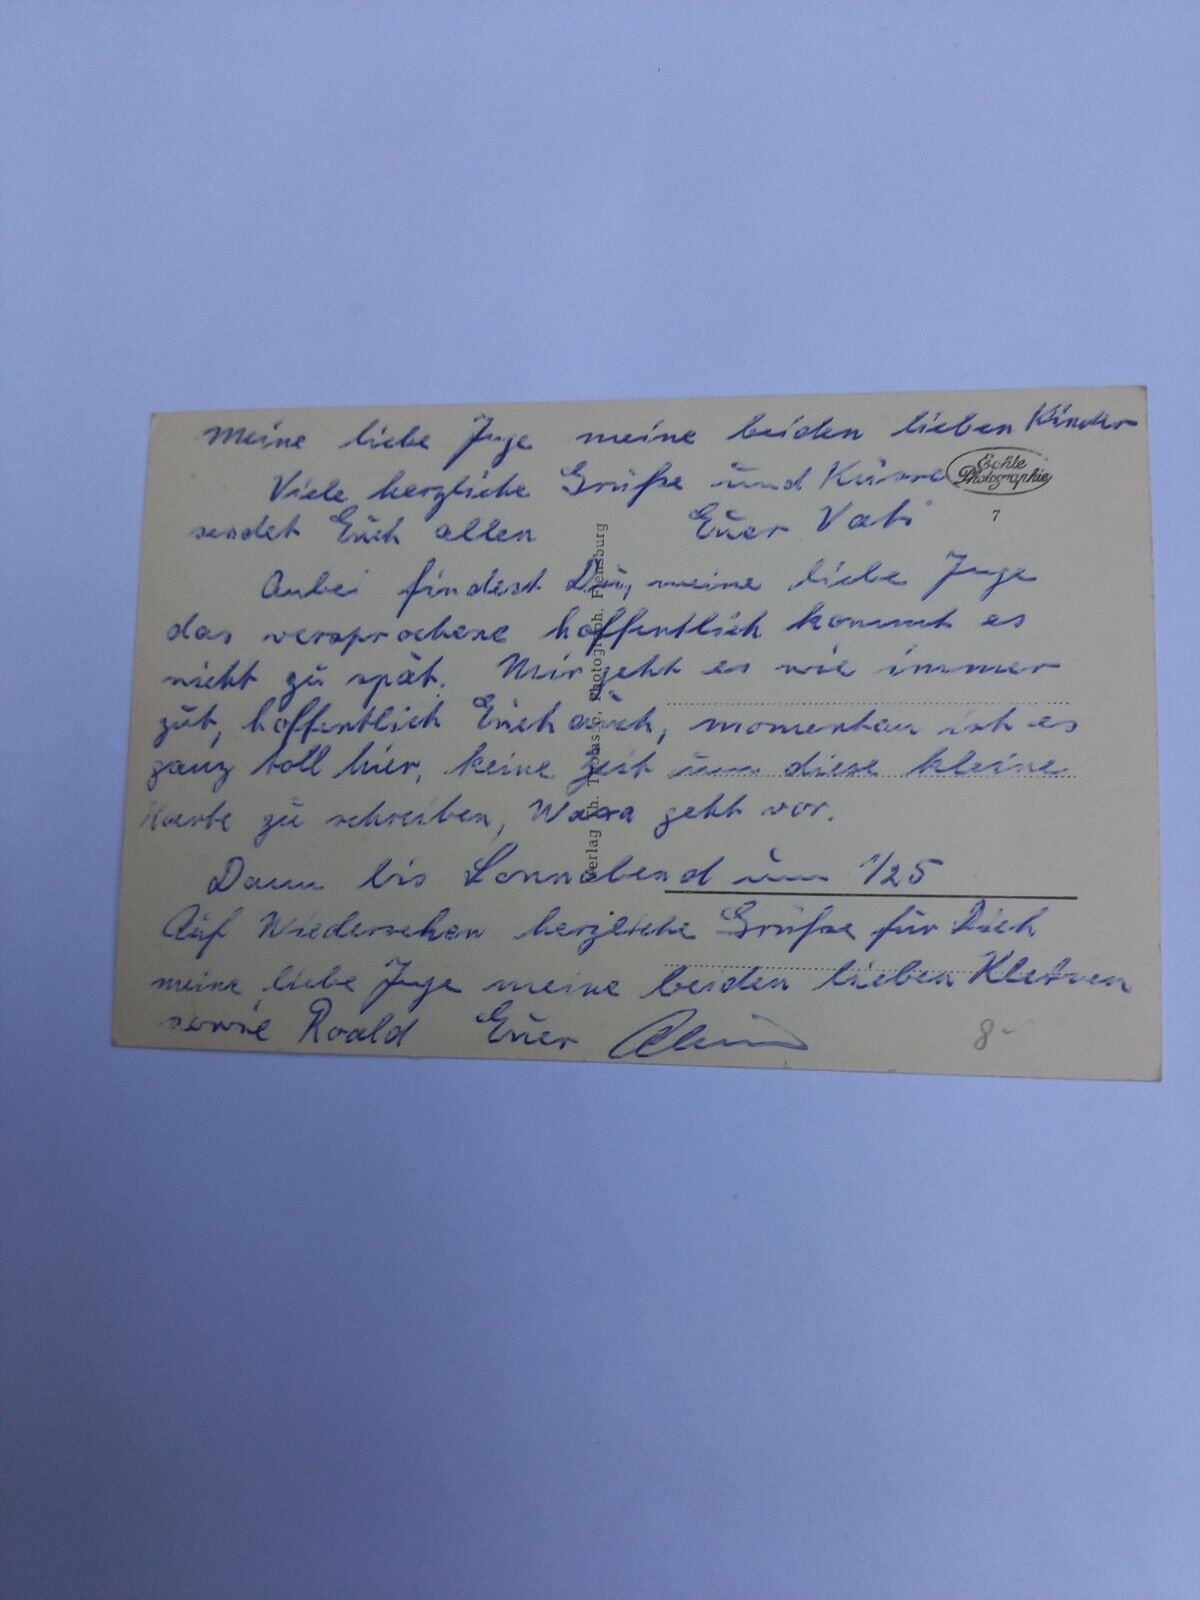 Meine liebe Inge meine beiden lieben Kinder
Viele herzliche Grüße und Küsse
sendet Euch allen Euer Vati
Anbei findest Du, meine liebe Inge
das versprochene hoffentlich kommt es
nicht zu spät. Mir geht es wie immer
gut, hoffentlich Euch auch, momentan ist es
ganz toll hier, keine Zeit um diese kleine
Karte zu schreiben, geht vor.
Dann bis Sonnabend um 1/25
Auf Wiedersehen herzliche Grüße für Dich
meine liebe Inge meine beiden lieben Kleinen
sowie Roald Euer
Echte
Photographie
7
Verlag Th. Thomsen, Photograph, Flensburg
8-